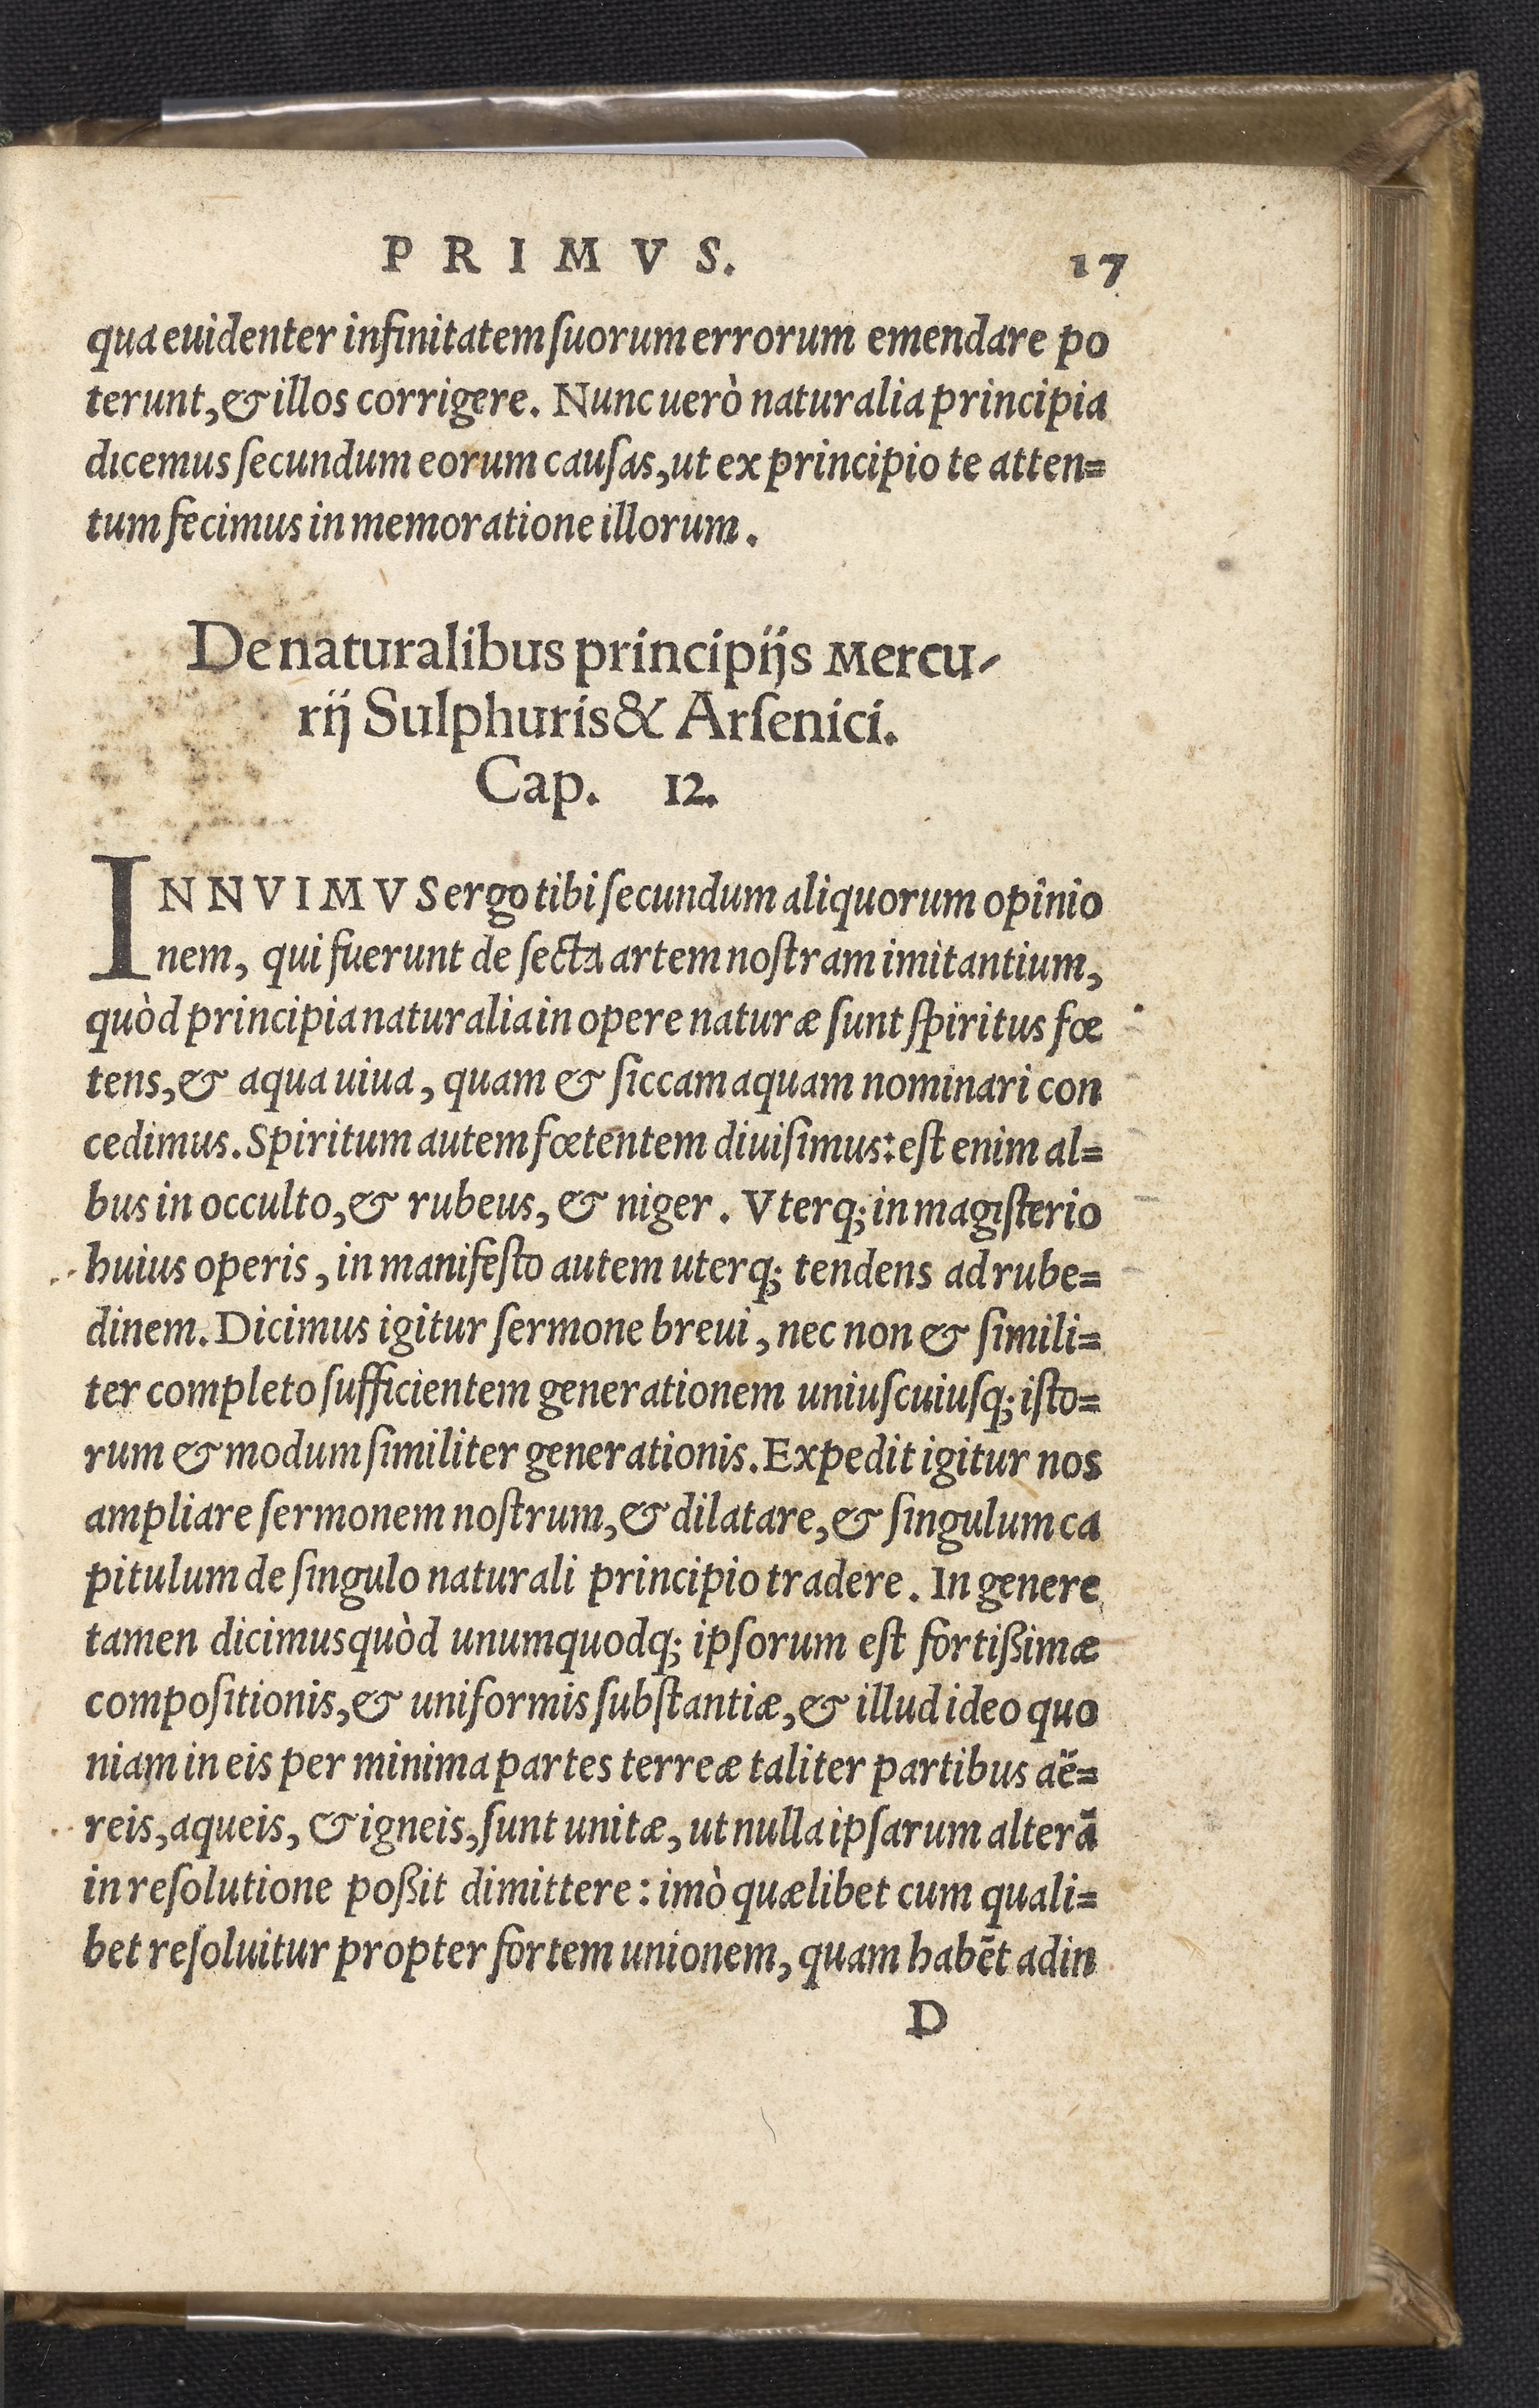 PRIMVS. 17
qua euidenter infinitatem ſuorum errorum emendare po
terunt, & illos corrigere. Nunc uerò naturalia principia
dicemus ſecundum eorum cauſas, ut ex principio te atten=
tum fecimus in memoratione illorum.
De naturalibus principijs Mercu-
rij Sulphuris & Arſenici.
Cap. 12.
INNVIMVS ergo tibi ſecundum aliquorum opinio
nem, qui fuerunt de ſecta artem noſtram imitantium,
quòd principia naturalia in opere naturæ ſunt ſpiritus fœ
tens, & aqua uiua, quam & ſiccam aquam nominari con
cedimus. Spiritum autem fœtentem diuiſimus: eſt enim al=
bus in occulto, & rubeus, & niger. Vterq; in magiſterio
huius operis, in manifeſto autem uterq; tendens ad rube=
dinem. Dicimus igitur ſermone breui, nec non & ſimili=
ter completo ſufficientem generationem uniuſcuiuſq; iſto=
rum & modum ſimiliter generationis. Expedit igitur nos
ampliare ſermonem noſtrum, & dilatare, & ſingulum ca
pitulum de ſingulo naturali principio tradere. In genere
tamen dicimus quòd unumquodq; ipſorum eſt fortißimæ
compoſitionis, & uniformis ſubſtantiæ, & illud ideo quo
niam in eis per minima partes terreæ taliter partibus aë=
reis, aqueis, & igneis, ſunt unitæ, ut nulla ipſarum alterā
in reſolutione poßit dimittere: imò quælibet cum quali=
bet reſoluitur propter fortem unionem, quam habēt adin
D